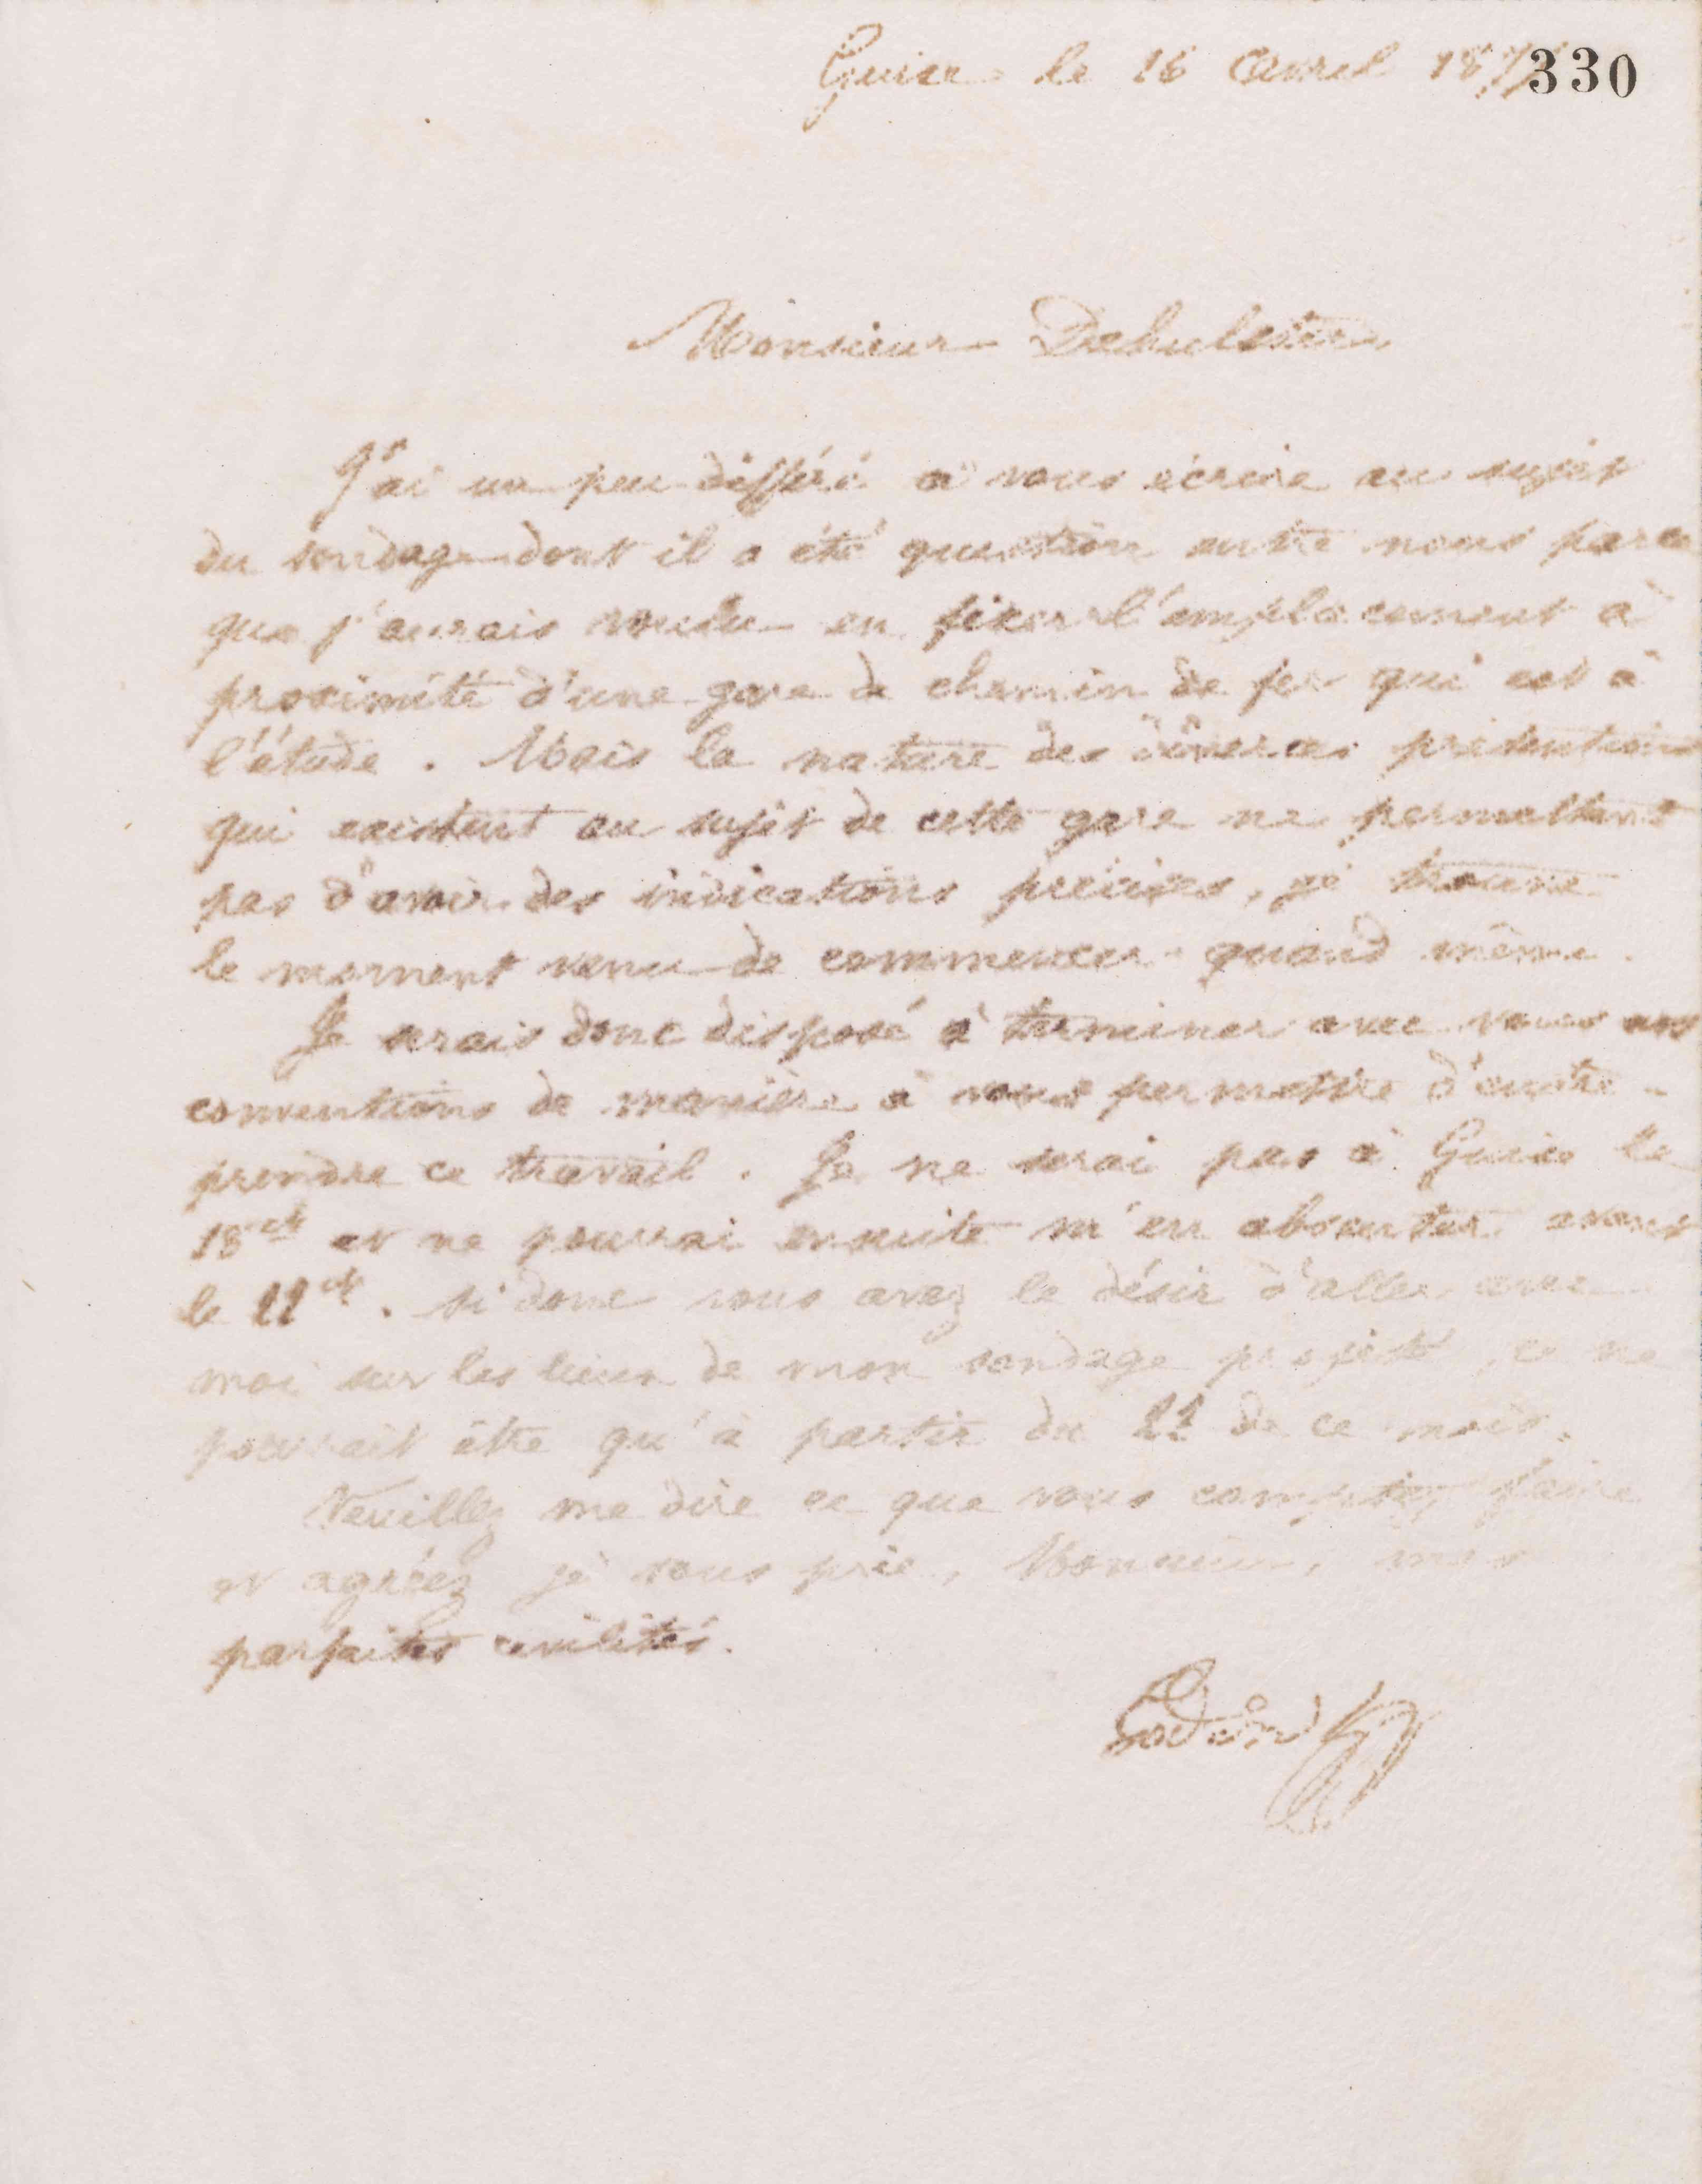 Guise le 16 Avril 1877 330
Monsieur Dehulster
J'ai un peu différé à vous écrire au sujet
du sondage dont il a été question entre nous parce
que j'aurais voulu en fixer l'emplacement à
proximité d'une gare de chemin de fer qui est à
l'étude. Mais la nature des diverses prétentions
qui existent au sujet de cette gare ne permettant
pas d'avoir des indications précises, je trouve
le moment venu de commencer quand même.
Je serais donc disposé à terminer avec vous nos
conventions de manière à vous permettre d'entre-
prendre ce travail. Je ne serai pas à Guise le
18 ct et ne pourrai ensuite m'en absenter avant
le 22 ct. Si donc vous avez le désir d'aller avec
moi sur les lieux de mon sondage projeté, ce ne
pourrait être qu'à partir du 22 de ce mois.
Veuillez me dire ce que vous comptez faire
et agréez je vous prie, Monsieur, mes
parfaites civilités.
Godin